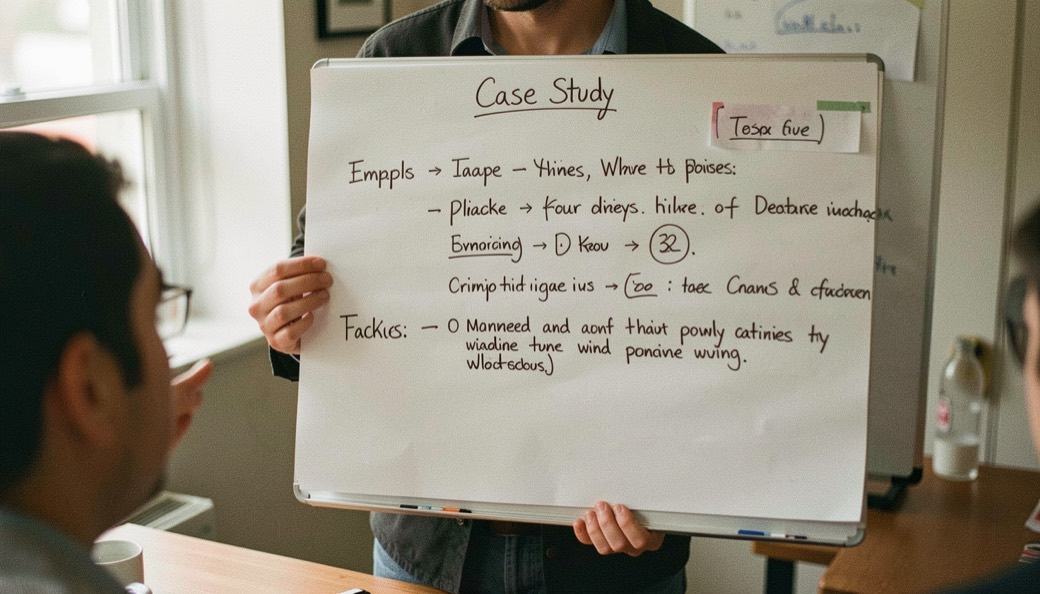 Case Study
[ Tespx five )
Emppls → Iaape – Yhines, Whve to poises:
– Pliacke → four dineys. hilke. of Deatane
Evnoricing → D Keou → 32.
Crimp tid iigae ius → : taec Cnans & cfucloven
Fackies: – O Manneed and aonf thaut powly catinies ty
wiadine tune wind ponaine wving.